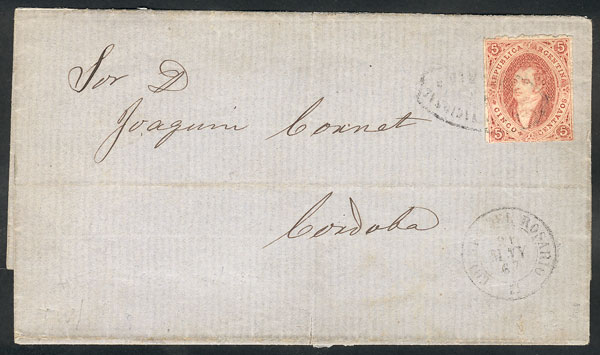 Sor D
Joaquin Cornet
Cordoba
5 REPUBLICA ARGENTINA 5
5 CINCO CENTAVOS 5
DEL ROSARIO
21